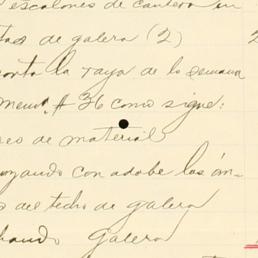 escalones de cantera en
tas de galera (2) 2
orta la raya de la semana
memo. # 36 como sigue:
reo de material
oyando con adobe los án-
s del techo de galera
hando galera